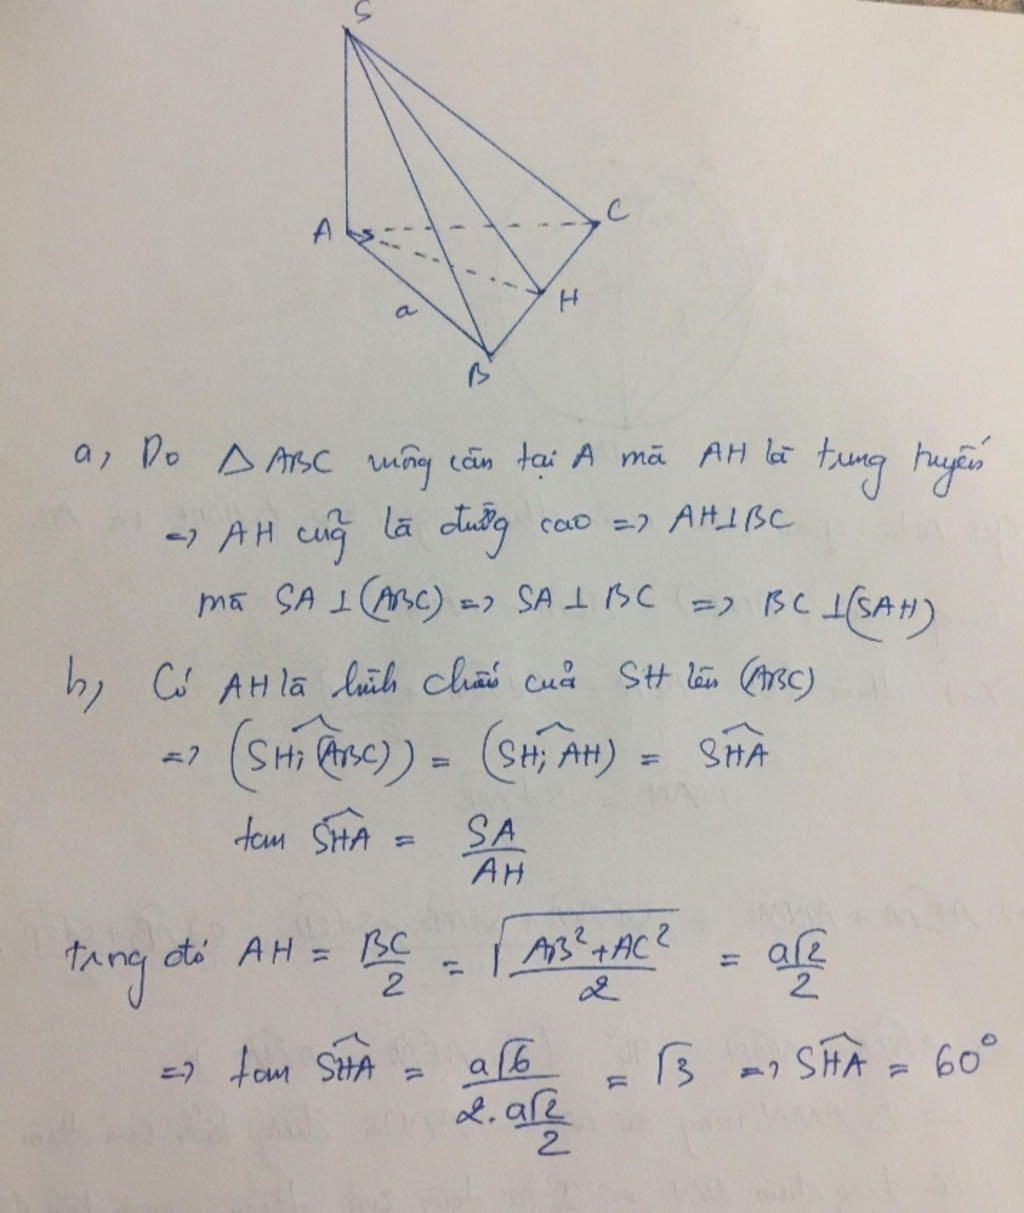 S
A
C
H
a
B
a, Do △ABC vuông cân tại A mà AH là trung tuyến
=> AH cũg là đường cao => AH⊥BC
mà SA ⊥ (ABC) => SA ⊥ BC => BC ⊥ (SAH)
b, Có AH là hình chiếu của SH lên (ABC)
=> (SH; (ABC)) = (SH; AH) = SHA
tan SHA = SA/AH
trong đó AH = BC/2 = √((AB²+AC²)/2) = a√2/2
=> tan SHA = a√6/(2.a√2/2) = √3 => SHA = 60°